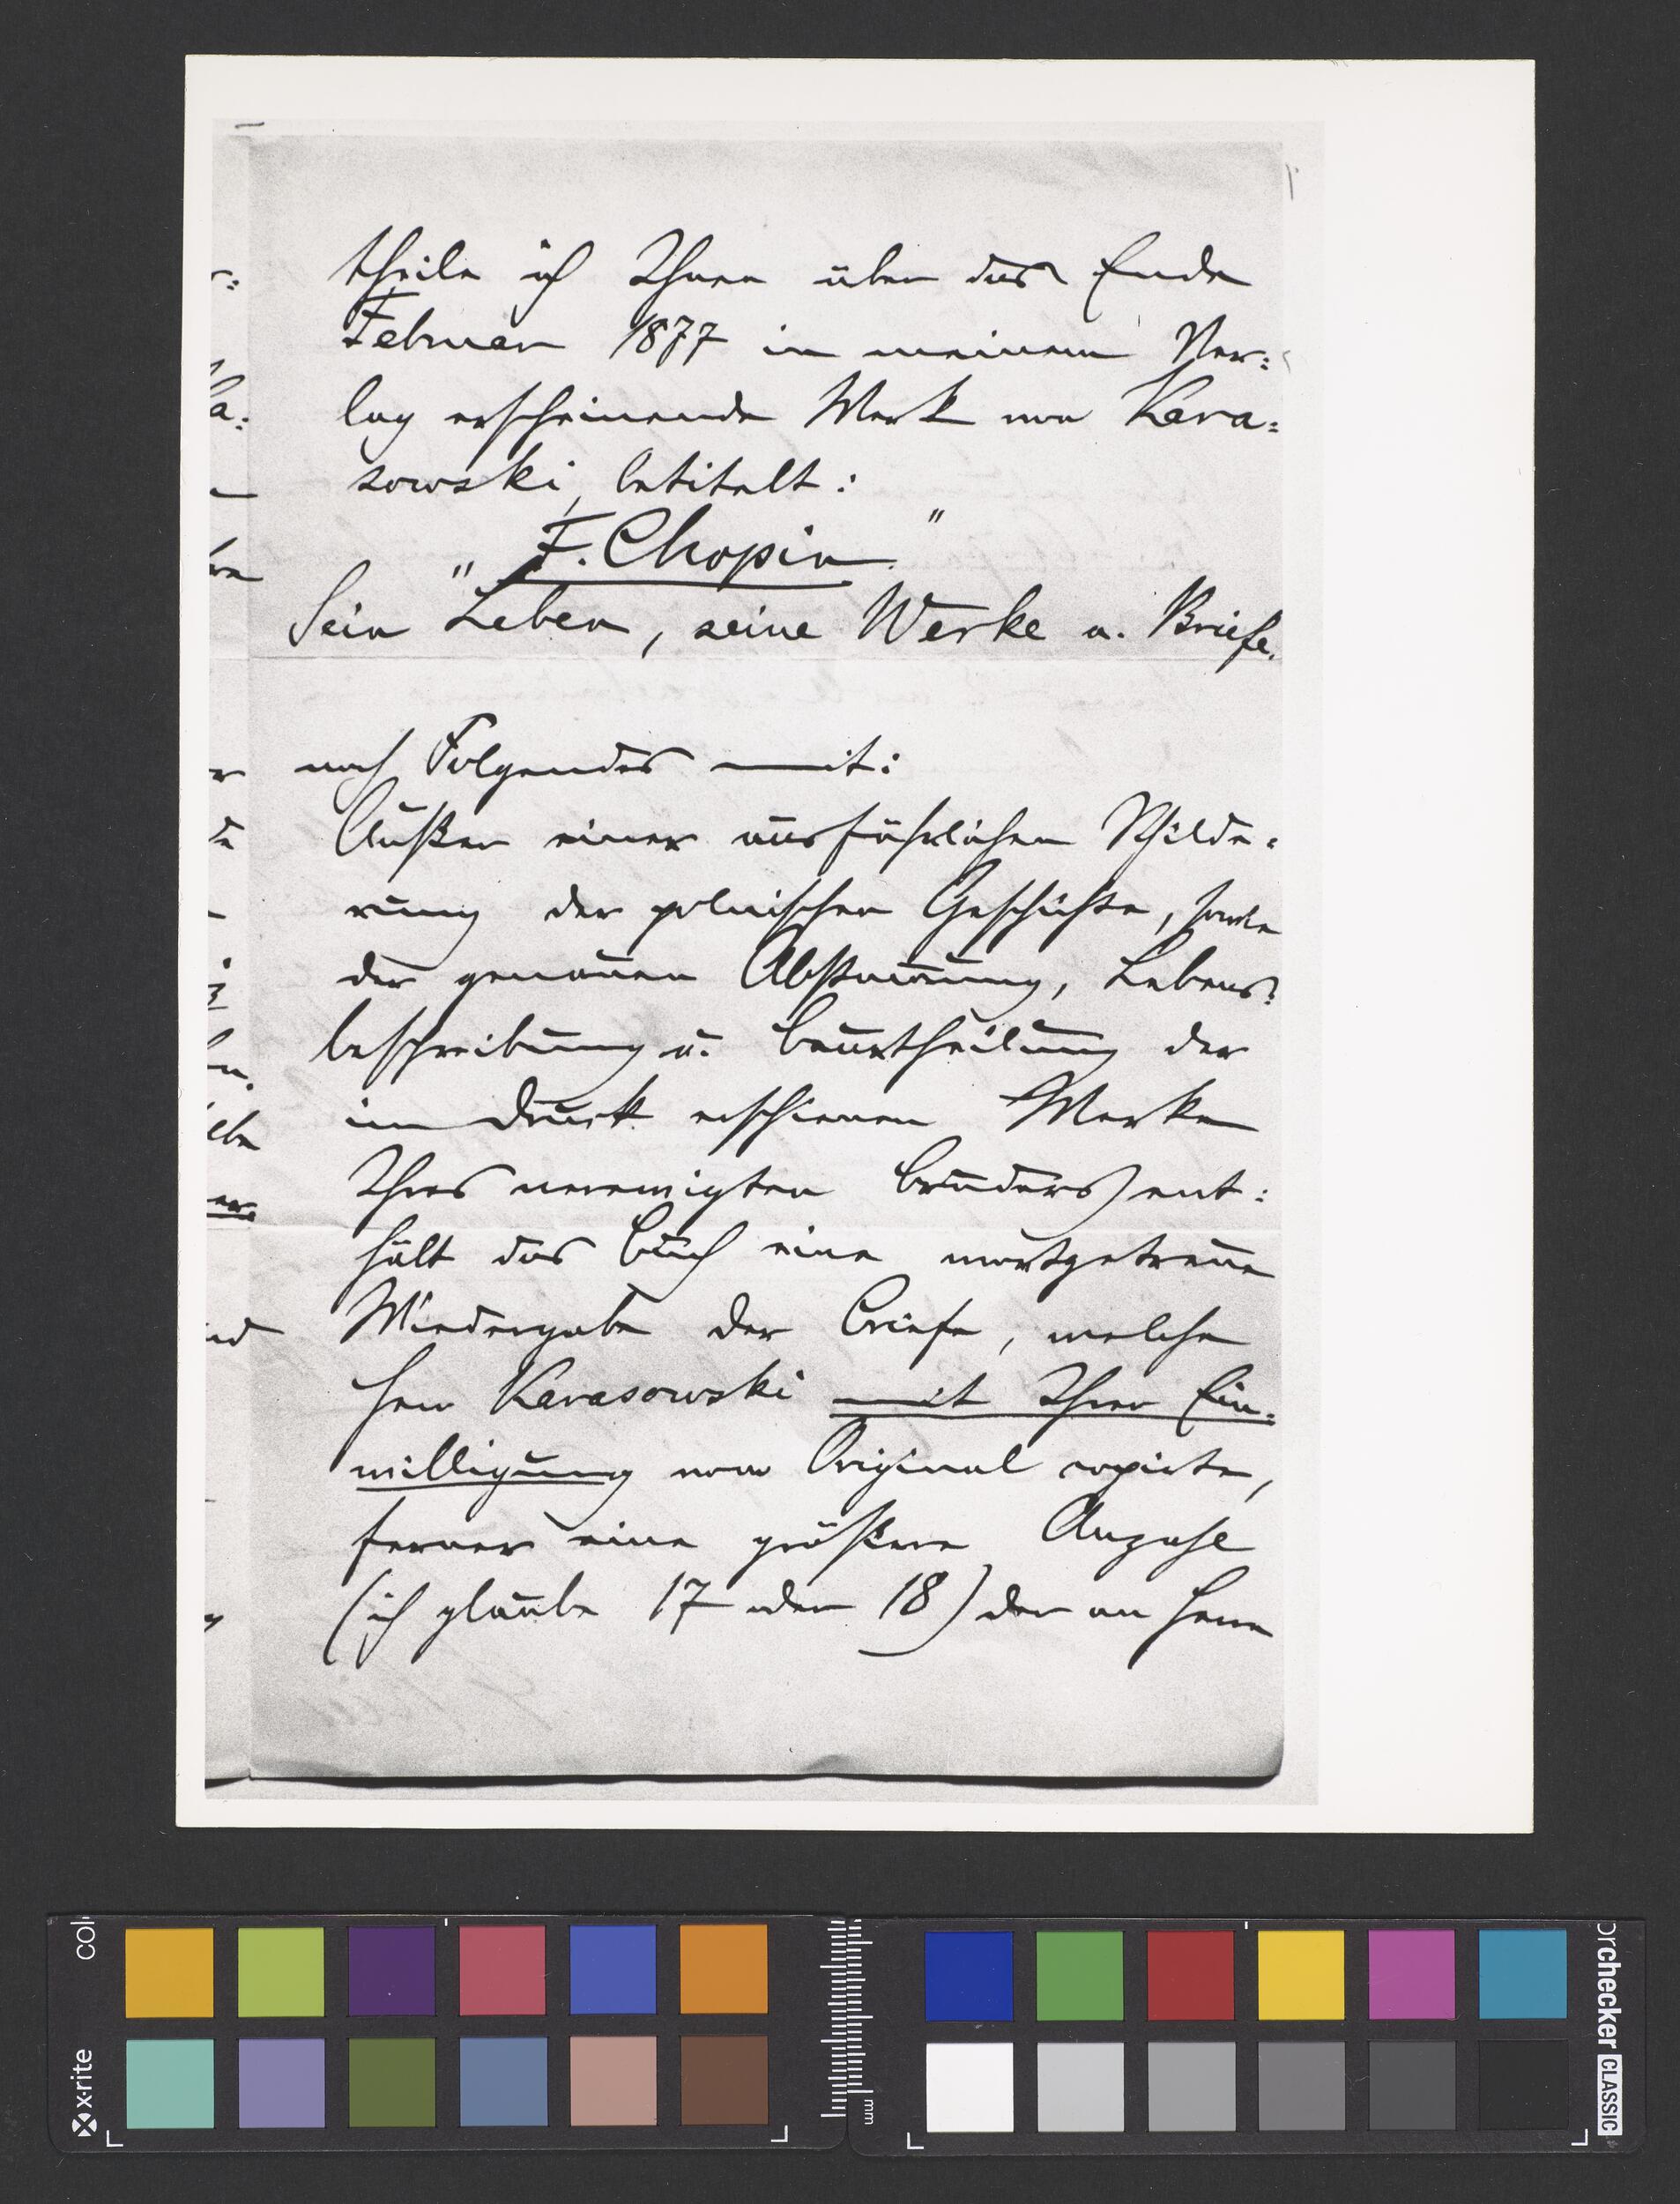 theile ich Ihnen über das Ende
Februar 1877 in meinem Ver=
lag erscheinende Werk von Kara=
sowski, betitelt:
"F. Chopin."
Sein Leben, seine Werke u. Briefe.
noch Folgendes mit:
Außer einer ausführlichen Schilde=
rung der polnischen Geschichte, sowie
der genauen Abstammung, Lebens=
beschreibung u. Beurtheilung der
im Druck erschienen Werke
Ihres verewigten Bruders) ent=
hält das Buch eine wortgetreue
Wiedergabe der Briefe, welche
Herr Karasowski mit Ihrer Ein=
willigung vom Original copirte,
ferner eine größere Anzahl
(ich glaube 17 oder 18) der an Herrn
colorchecker CLASSIC
x-rite
mm